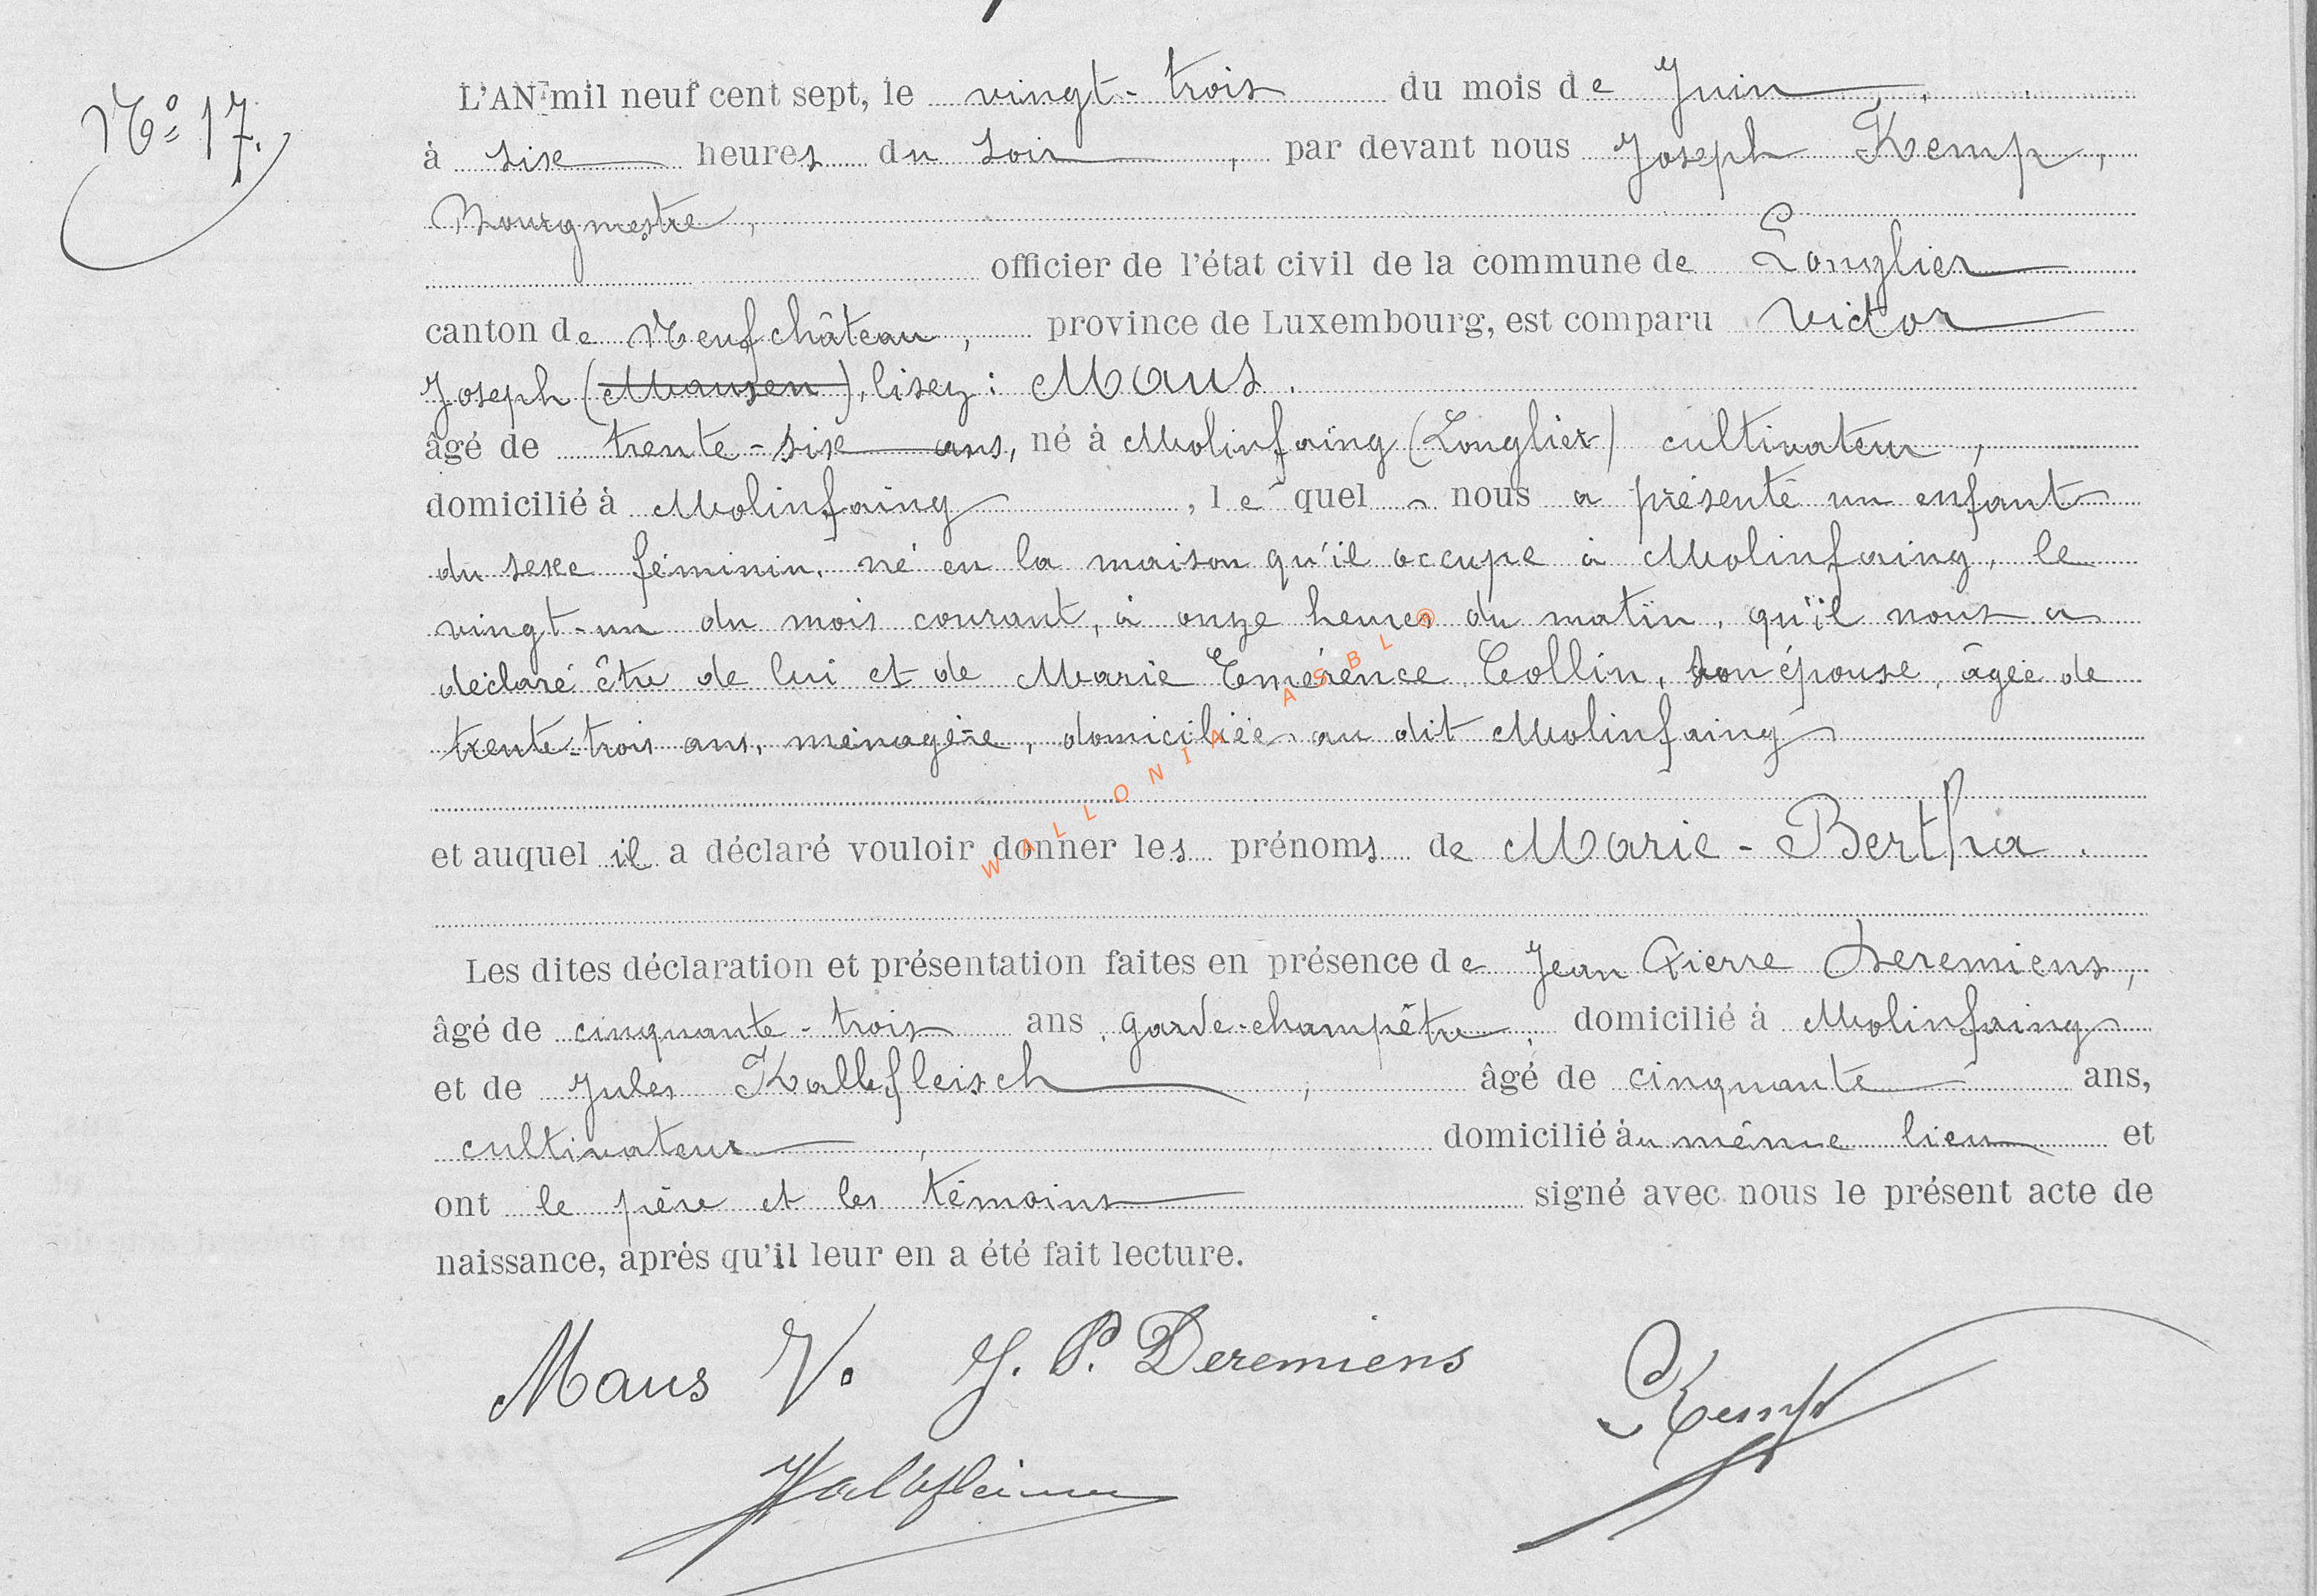 N° 17.
L'AN mil neuf cent sept, le vingt-trois du mois de Juin,
à six heures du soir, par devant nous Joseph Kemp,
Bourgmestre,
officier de l'état civil de la commune de Longlier
canton de Neufchâteau, province de Luxembourg, est comparu Victor
Joseph (Mausen), lisez: Maus.
âgé de trente-six ans, né à Molinfaing (Longlier) cultivateur,
domicilié à Molinfaing, lequel nous a présenté un enfant
du sexe féminin, né en la maison qu'il occupe à Molinfaing, le
vingt-un du mois courant, à onze heures du matin, qu'il nous a
déclaré être de lui et de Marie Emérence Collin, son épouse, âgée de
trente-trois ans, ménagère, domiciliée au dit Molinfaing
et auquel il a déclaré vouloir donner les prénoms de Marie-Bertha.
Les dites déclaration et présentation faites en présence de Jean Pierre Deremiens,
âgé de cinquante-trois ans, garde-champêtre, domicilié à Molinfaing
et de Jules Kalbfleisch, âgé de cinquante ans,
cultivateur, domicilié au même lieu et
ont le père et les témoins signé avec nous le présent acte de
naissance, après qu'il leur en a été fait lecture.
Maus V. J. P. Deremiens Kemp
WALLONIA ASBL ©